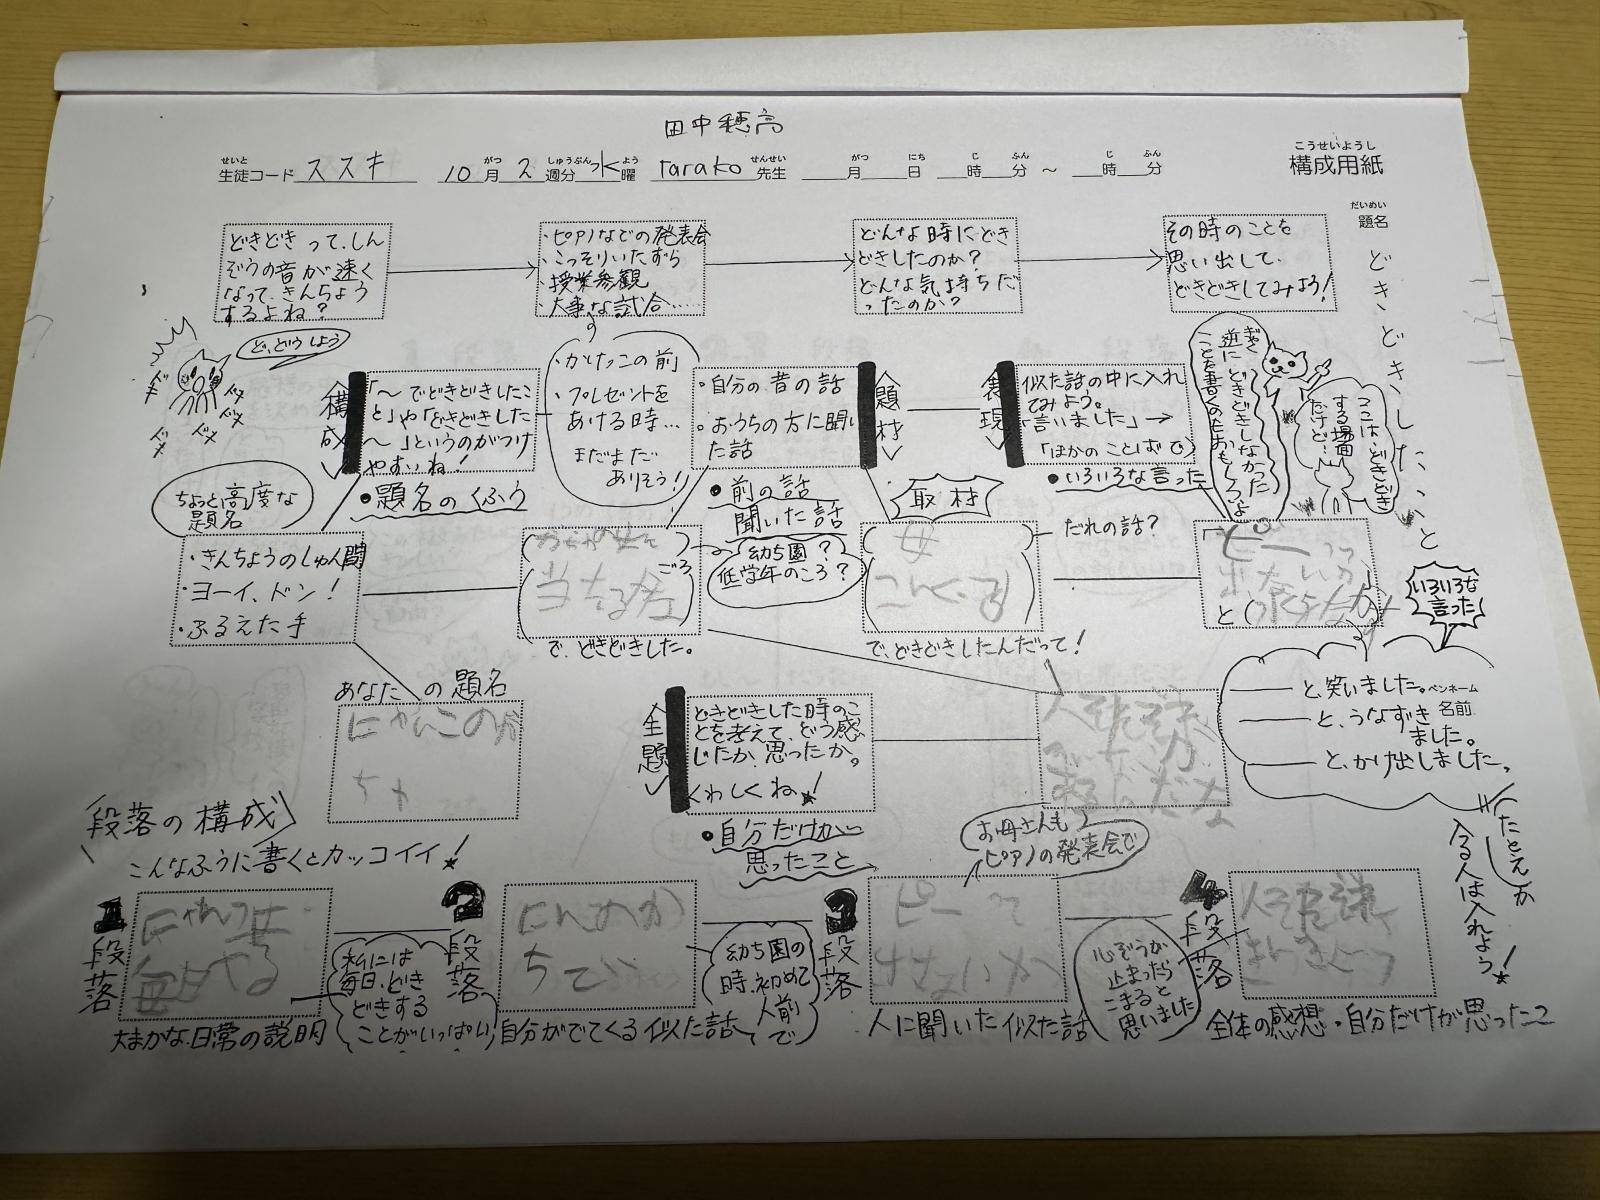 田中穂高
こうせいようし
構成用紙
せいと
生徒コード ススキ
がつ しゅうぶん よう せんせい
10月2週分 水曜 tarako先生
がつ にち じ ふん じ ふん
月 日 時 分 ～ 時 分
だいめい
題名
どきどきしたこと
どきどきって、しん
ぞうの音が速く
なって、きんちょう
するよね？
・ピアノなどの発表会
・こっそりいたずら
・授業参観
・大事な試合……
どんな時にどき
どきしたのか？
どんな気持ちだ
ったのか？
その時のことを
思い出して、
どきどきしてみよう！
ど、どうしよう
ドキ
ドメ
ドメ
ドメ
ドメ
構成
「～でどきどきしたこ
と」や「どきどきした
～」というのがつけ
やすいね！
・題名のくふう
・かけっこの前
・プレゼントを
あける時…
まだまだ
ありそう！
・自分の昔の話
・おうちの方に聞い
た話
・前の話
聞いた話
題材
表現
似た話の中に入れ
てみよう。
「言いました」→
「ほかのことばで」
・いろいろな言った
ぎゃく
逆にどきどきしなかった
ことを書くのもおもしろいよ
ここは、どきどき
する場面
だけど…
ちょっと高度な
題名
・きんちょうのしゅん間
・ヨーイ、ドン！
・ふるえた手
ごろ
で、どきどきした。
幼ち園？
低学年のころ？
取材
母
で、どきどきしたんだって！
だれの話？
ピーっ
と
いろいろな
言った
と、笑いました。
と、うなずき
ました。
と、かけ出しました。
ペンネーム
名前
あなたの題名
にゃんこの
主題
どきどきした時のこ
とを考えて、どう感
じたか、思ったか。
くわしくね！
・自分だけが
思ったこと
たとえが
入る人は入れよう！
段落の構成
こんなふうに書くとカッコイイ！
お母さんも
ピアノの発表会で
1段落
毎日やる
大まかな日常の説明
私には
毎日、どき
どきする
ことがいっぱい
2段落
自分がでてくる似た話
幼ち園の
時、初めて
人前
で
3段落
ピーって
人に聞いた似た話
心ぞうが
止まったら
こまると
思いました
4段落
全体の感想・自分だけが思ったこ